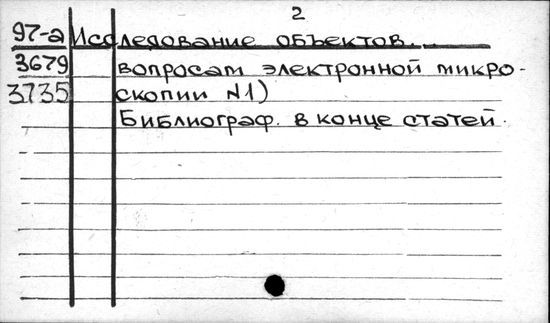 2
97-а Исследование объектов...
3679 вопросам электронной микро-
3735 скопии N1)
Библиограф. в конце статей.